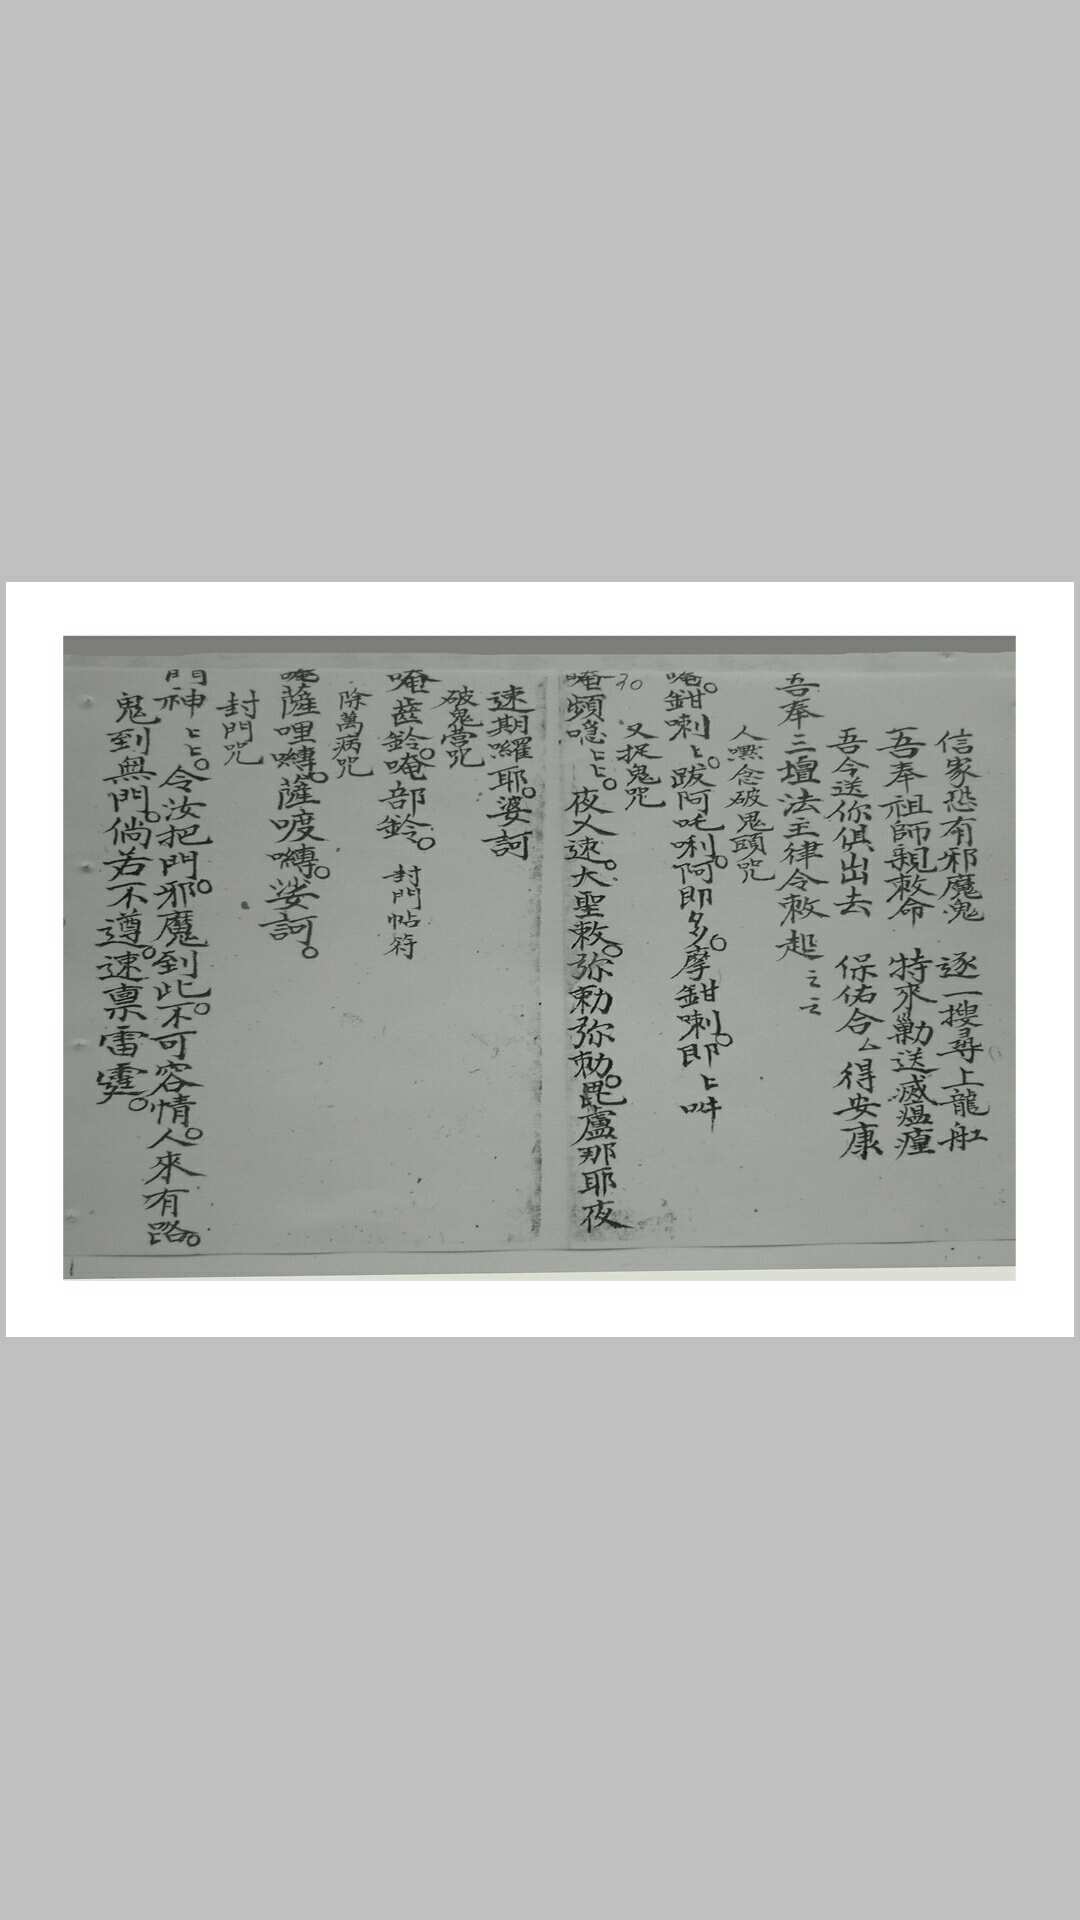 信家恐有邪魔鬼 逐一搜尋上龍舡
吾奉祖師親敕命 特來勦送滅瘟瘟
吾今送你俱出去 保佑合厶得安康
吾奉三壇法主律令敕 起 云云
人嘿念破鬼頭咒
唵。鉗喇〻。跋阿吒唎。阿即多。摩鉗喇。即〻吽
又捉鬼咒
30
唵頻㘟〻〻。夜义速。大聖敕。弥勅弥勅。毘盧那耶夜
速期囉耶。婆訶
破鬼营咒
唵齒鈴。唵部鈴。 封門帖符
除萬病咒
唵薩哩嚩。薩㗶嚩。娑訶。
封門咒
門神〻〻。令汝把門。邪魔到此。不可容情。人來有路。
鬼到無門。倘若不遵。速禀雷霆。